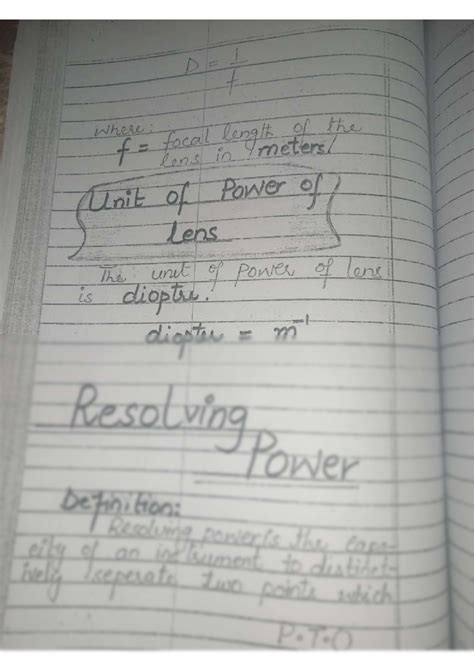 D = 1/f
where:
f = focal length of the
lens in meters
Unit of Power of
lens
The unit of power of lens
is dioptre.
diopter = m⁻¹
Resolving
Power
Definition:
Resolving power is the capa-
city of an instrument to distinct-
ively seperate two points which
P.T.O